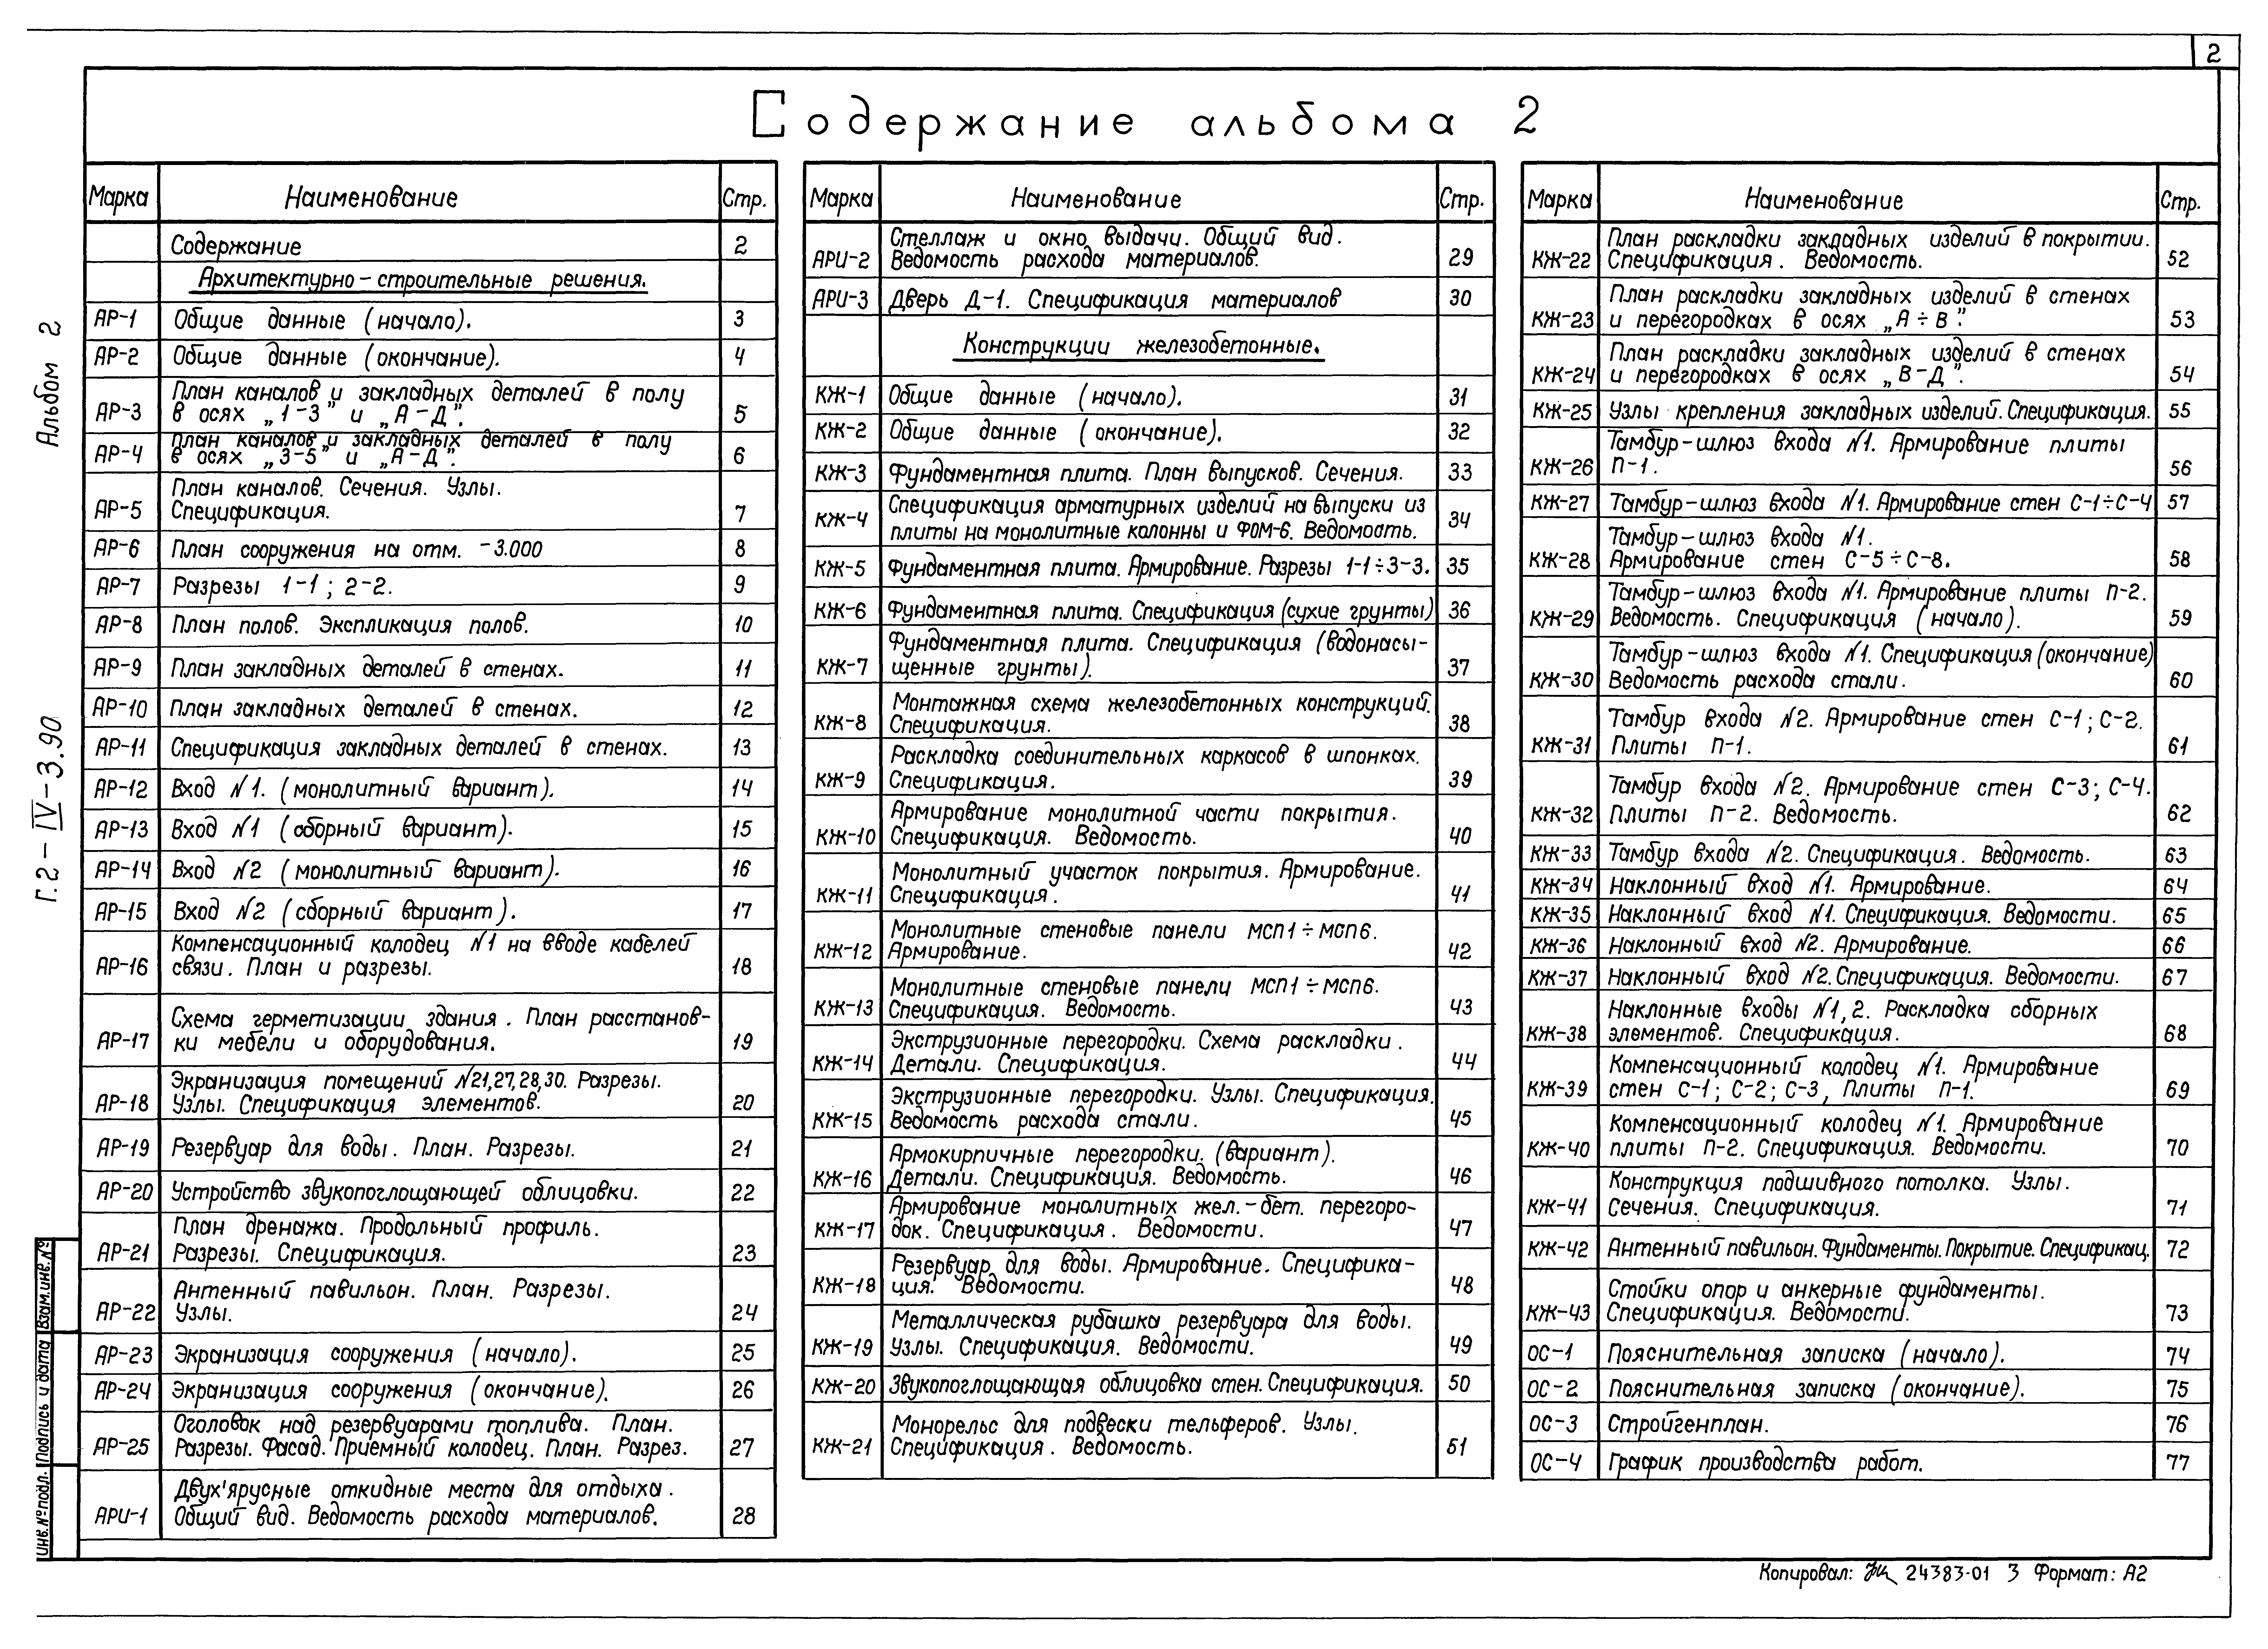 2
Содержание альбома 2
Марка Наименование Стр.
Содержание 2
Архитектурно-строительные решения.
АР-1 Общие данные (начало). 3
АР-2 Общие данные (окончание). 4
План каналов и закладных деталей в полу
АР-3 в осях „1-3" и „А-Д". 5
План каналов и закладных деталей в полу
АР-4 в осях „3-5" и „А-Д". 6
План каналов. Сечения. Узлы.
АР-5 Спецификация. 7
АР-6 План сооружения на отм. -3.000 8
АР-7 Разрезы 1-1; 2-2. 9
АР-8 План полов. Экспликация полов. 10
АР-9 План закладных деталей в стенах. 11
АР-10 План закладных деталей в стенах. 12
АР-11 Спецификация закладных деталей в стенах. 13
АР-12 Вход №1. (монолитный вариант). 14
АР-13 Вход №1 (сборный вариант). 15
АР-14 Вход №2 (монолитный вариант). 16
АР-15 Вход №2 (сборный вариант). 17
Компенсационный колодец №1 на вводе кабелей
АР-16 связи. План и разрезы. 18
Схема герметизации здания. План расстанов-
АР-17 ки мебели и оборудования. 19
Экранизация помещений №21,27,28,30. Разрезы.
АР-18 Узлы. Спецификация элементов. 20
АР-19 Резервуар для воды. План. Разрезы. 21
АР-20 Устройство звукопоглощающей облицовки. 22
План дренажа. Продольный профиль.
АР-21 Разрезы. Спецификация. 23
Антенный павильон. План. Разрезы.
АР-22 Узлы. 24
АР-23 Экранизация сооружения (начало). 25
АР-24 Экранизация сооружения (окончание). 26
Оголовок над резервуарами топлива. План.
АР-25 Разрезы. Фасад. Приемный колодец. План. Разрез. 27
Двух'ярусные откидные места для отдыха.
АРИ-1 Общий вид. Ведомость расхода материалов. 28
Марка Наименование Стр.
Стеллаж и окно выдачи. Общий вид.
АРИ-2 Ведомость расхода материалов. 29
АРИ-3 Дверь Д-1. Спецификация материалов 30
Конструкции железобетонные.
КЖ-1 Общие данные (начало). 31
КЖ-2 Общие данные (окончание). 32
КЖ-3 Фундаментная плита. План выпусков. Сечения. 33
Спецификация арматурных изделий на выпуски из
КЖ-4 плиты на монолитные колонны и ФОМ-6. Ведомость. 34
КЖ-5 Фундаментная плита. Армирование. Разрезы 1-1÷3-3. 35
КЖ-6 Фундаментная плита. Спецификация (сухие грунты) 36
Фундаментная плита. Спецификация (водонасы-
КЖ-7 щенные грунты). 37
Монтажная схема железобетонных конструкций.
КЖ-8 Спецификация. 38
Раскладка соединительных каркасов в шпонках.
КЖ-9 Спецификация. 39
Армирование монолитной части покрытия.
КЖ-10 Спецификация. Ведомость. 40
Монолитный участок покрытия. Армирование.
КЖ-11 Спецификация. 41
Монолитные стеновые панели МСП1÷МСП6.
КЖ-12 Армирование. 42
Монолитные стеновые панели МСП1÷МСП6.
КЖ-13 Спецификация. Ведомость. 43
Экструзионные перегородки. Схема раскладки.
КЖ-14 Детали. Спецификация. 44
Экструзионные перегородки. Узлы. Спецификация.
КЖ-15 Ведомость расхода стали. 45
Армокирпичные перегородки. (вариант).
КЖ-16 Детали. Спецификация. Ведомость. 46
Армирование монолитных жел.-бет. перегоро-
КЖ-17 док. Спецификация. Ведомости. 47
Резервуар для воды. Армирование. Специфика-
КЖ-18 ция. Ведомости. 48
Металлическая рубашка резервуара для воды.
КЖ-19 Узлы. Спецификация. Ведомости. 49
КЖ-20 Звукопоглощающая облицовка стен. Спецификация. 50
Монорельс для подвески тельферов. Узлы.
КЖ-21 Спецификация. Ведомость. 51
Марка Наименование Стр.
План раскладки закладных изделий в покрытии.
КЖ-22 Спецификация. Ведомость. 52
План раскладки закладных изделий в стенах
КЖ-23 и перегородках в осях „А÷В". 53
План раскладки закладных изделий в стенах
КЖ-24 и перегородках в осях „В-Д". 54
КЖ-25 Узлы крепления закладных изделий. Спецификация. 55
Тамбур-шлюз входа №1. Армирование плиты
КЖ-26 П-1. 56
КЖ-27 Тамбур-шлюз входа №1. Армирование стен С-1÷С-4 57
Тамбур-шлюз входа №1.
КЖ-28 Армирование стен С-5÷С-8. 58
Тамбур-шлюз входа №1. Армирование плиты П-2.
КЖ-29 Ведомость. Спецификация (начало). 59
Тамбур-шлюз входа №1. Спецификация (окончание)
КЖ-30 Ведомость расхода стали. 60
Тамбур входа №2. Армирование стен С-1; С-2.
КЖ-31 Плиты П-1. 61
Тамбур входа №2. Армирование стен С-3; С-4.
КЖ-32 Плиты П-2. Ведомость. 62
КЖ-33 Тамбур входа №2. Спецификация. Ведомость. 63
КЖ-34 Наклонный вход №1. Армирование. 64
КЖ-35 Наклонный вход №1. Спецификация. Ведомости. 65
КЖ-36 Наклонный вход №2. Армирование. 66
КЖ-37 Наклонный вход №2. Спецификация. Ведомости. 67
Наклонные входы №1,2. Раскладка сборных
КЖ-38 элементов. Спецификация. 68
Компенсационный колодец №1. Армирование
КЖ-39 стен С-1; С-2; С-3, Плиты П-1. 69
Компенсационный колодец №1. Армирование
КЖ-40 плиты П-2. Спецификация. Ведомости. 70
Конструкция подшивного потолка. Узлы.
КЖ-41 Сечения. Спецификация. 71
КЖ-42 Антенный павильон. Фундаменты. Покрытие. Спецификац. 72
Стойки опор и анкерные фундаменты.
КЖ-43 Спецификация. Ведомости. 73
ОС-1 Пояснительная записка (начало). 74
ОС-2 Пояснительная записка (окончание). 75
ОС-3 Стройгенплан. 76
ОС-4 График производства работ. 77
Альбом 2
Г.2-IV-3.90
Взам.инв.№
Подпись и дата
Инв.№ подл.
Копировал: 24383-01 3 Формат: А2